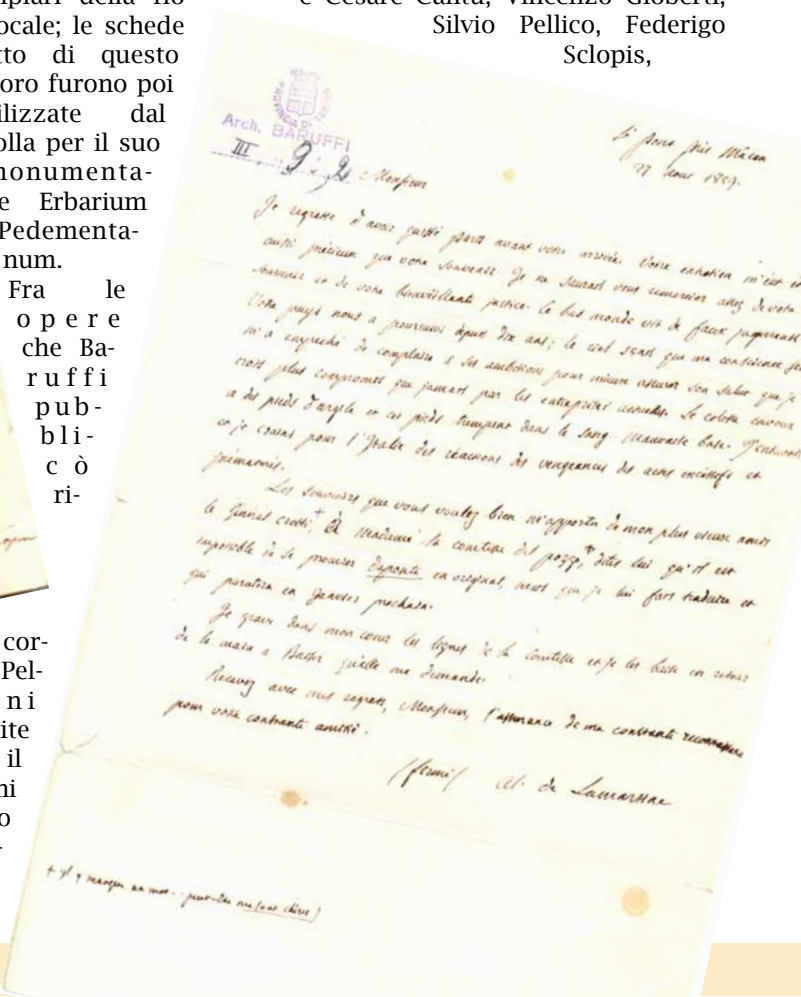 mplari della flo
ocale; le schede
tto di questo
oro furono poi
ilizzate dal
olla per il suo
monumenta-
e Erbarium
Pedementa-
num.
Fra le
opere
che Ba-
ruffi
pub-
bli-
cò
ri-
cor-
Pel-
ni
ite
il
ni
o
e Cesare Cantù, Vincenzo Gioberti,
Silvio Pellico, Federigo
Sclopis,
PROVINCIA DI TORINO
Arch. BARUFFI
III, 9, 2
St Pons près Mâcon
1859.
Monsieur
Je regrette d'avoir quitté Paris avant votre arrivée. Votre entretien m'eut été
aussi précieux que votre souvenir. Je ne saurais vous remercier assez de votre
souvenir et de votre bienveillante justice. Le bas monde vit de faux jugements
Votre pays nous a poursuivi depuis dix ans; le ciel sçait que ma conscience
m'a empêché de complaire à ses ambitions pour mieux assurer son salut que je
crois plus compromis que jamais par les entreprises actuelles. Le colosse
a des pieds d'argile et ces pieds trempent dans le sang. Mauvaise base.
et je crains pour l'Italie des réactions des vengeances des actes excessifs et
Les souvenirs que vous voulez bien m'apporter de mon plus vieux amis
le Général Crotti, + à Madame la comtesse del Pozzo, dites lui qu'il est
impossible de se procurer en original, mais que je lui fais traduire et
qui paraitra en Janvier prochain.
Je grave dans mon coeur les lignes de la Comtesse et je les baise en retour
de la main à baiser qu'elle me demande.
Recevez avec mes regrets, Monsieur, l'assurance de ma constante reconnaissance
pour votre constante amitié.
(firmé) Al. de Lamartine
+ il y manque un mot - peut-être me sont chers)